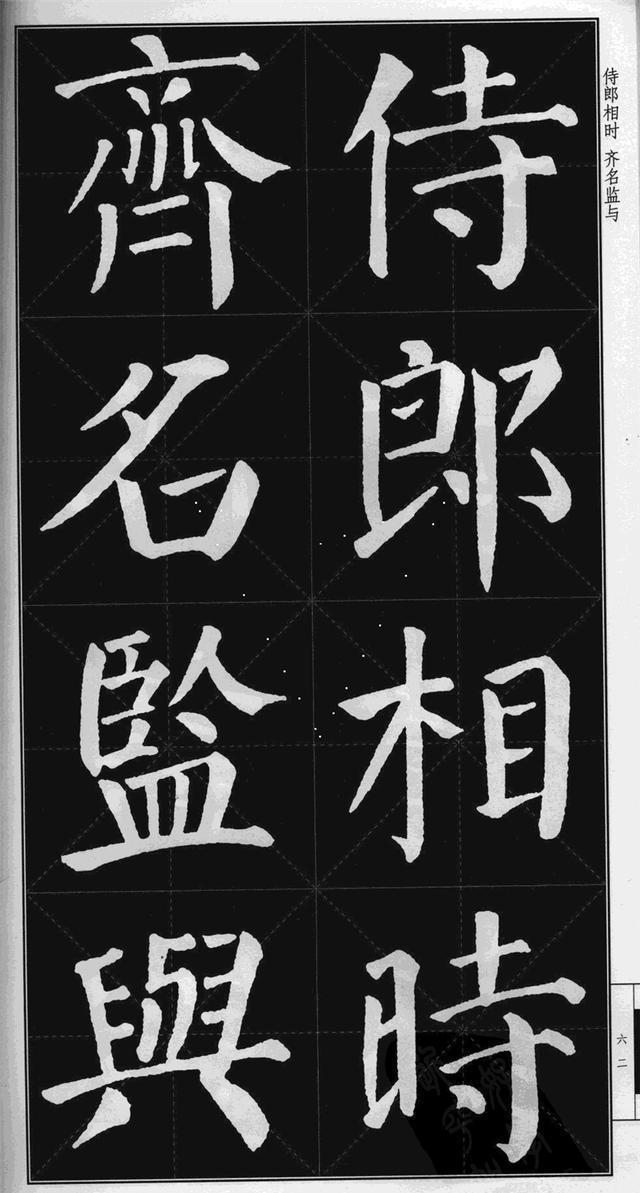 侍郎相时 齐名监与
侍郎相時
齊名監與
六二